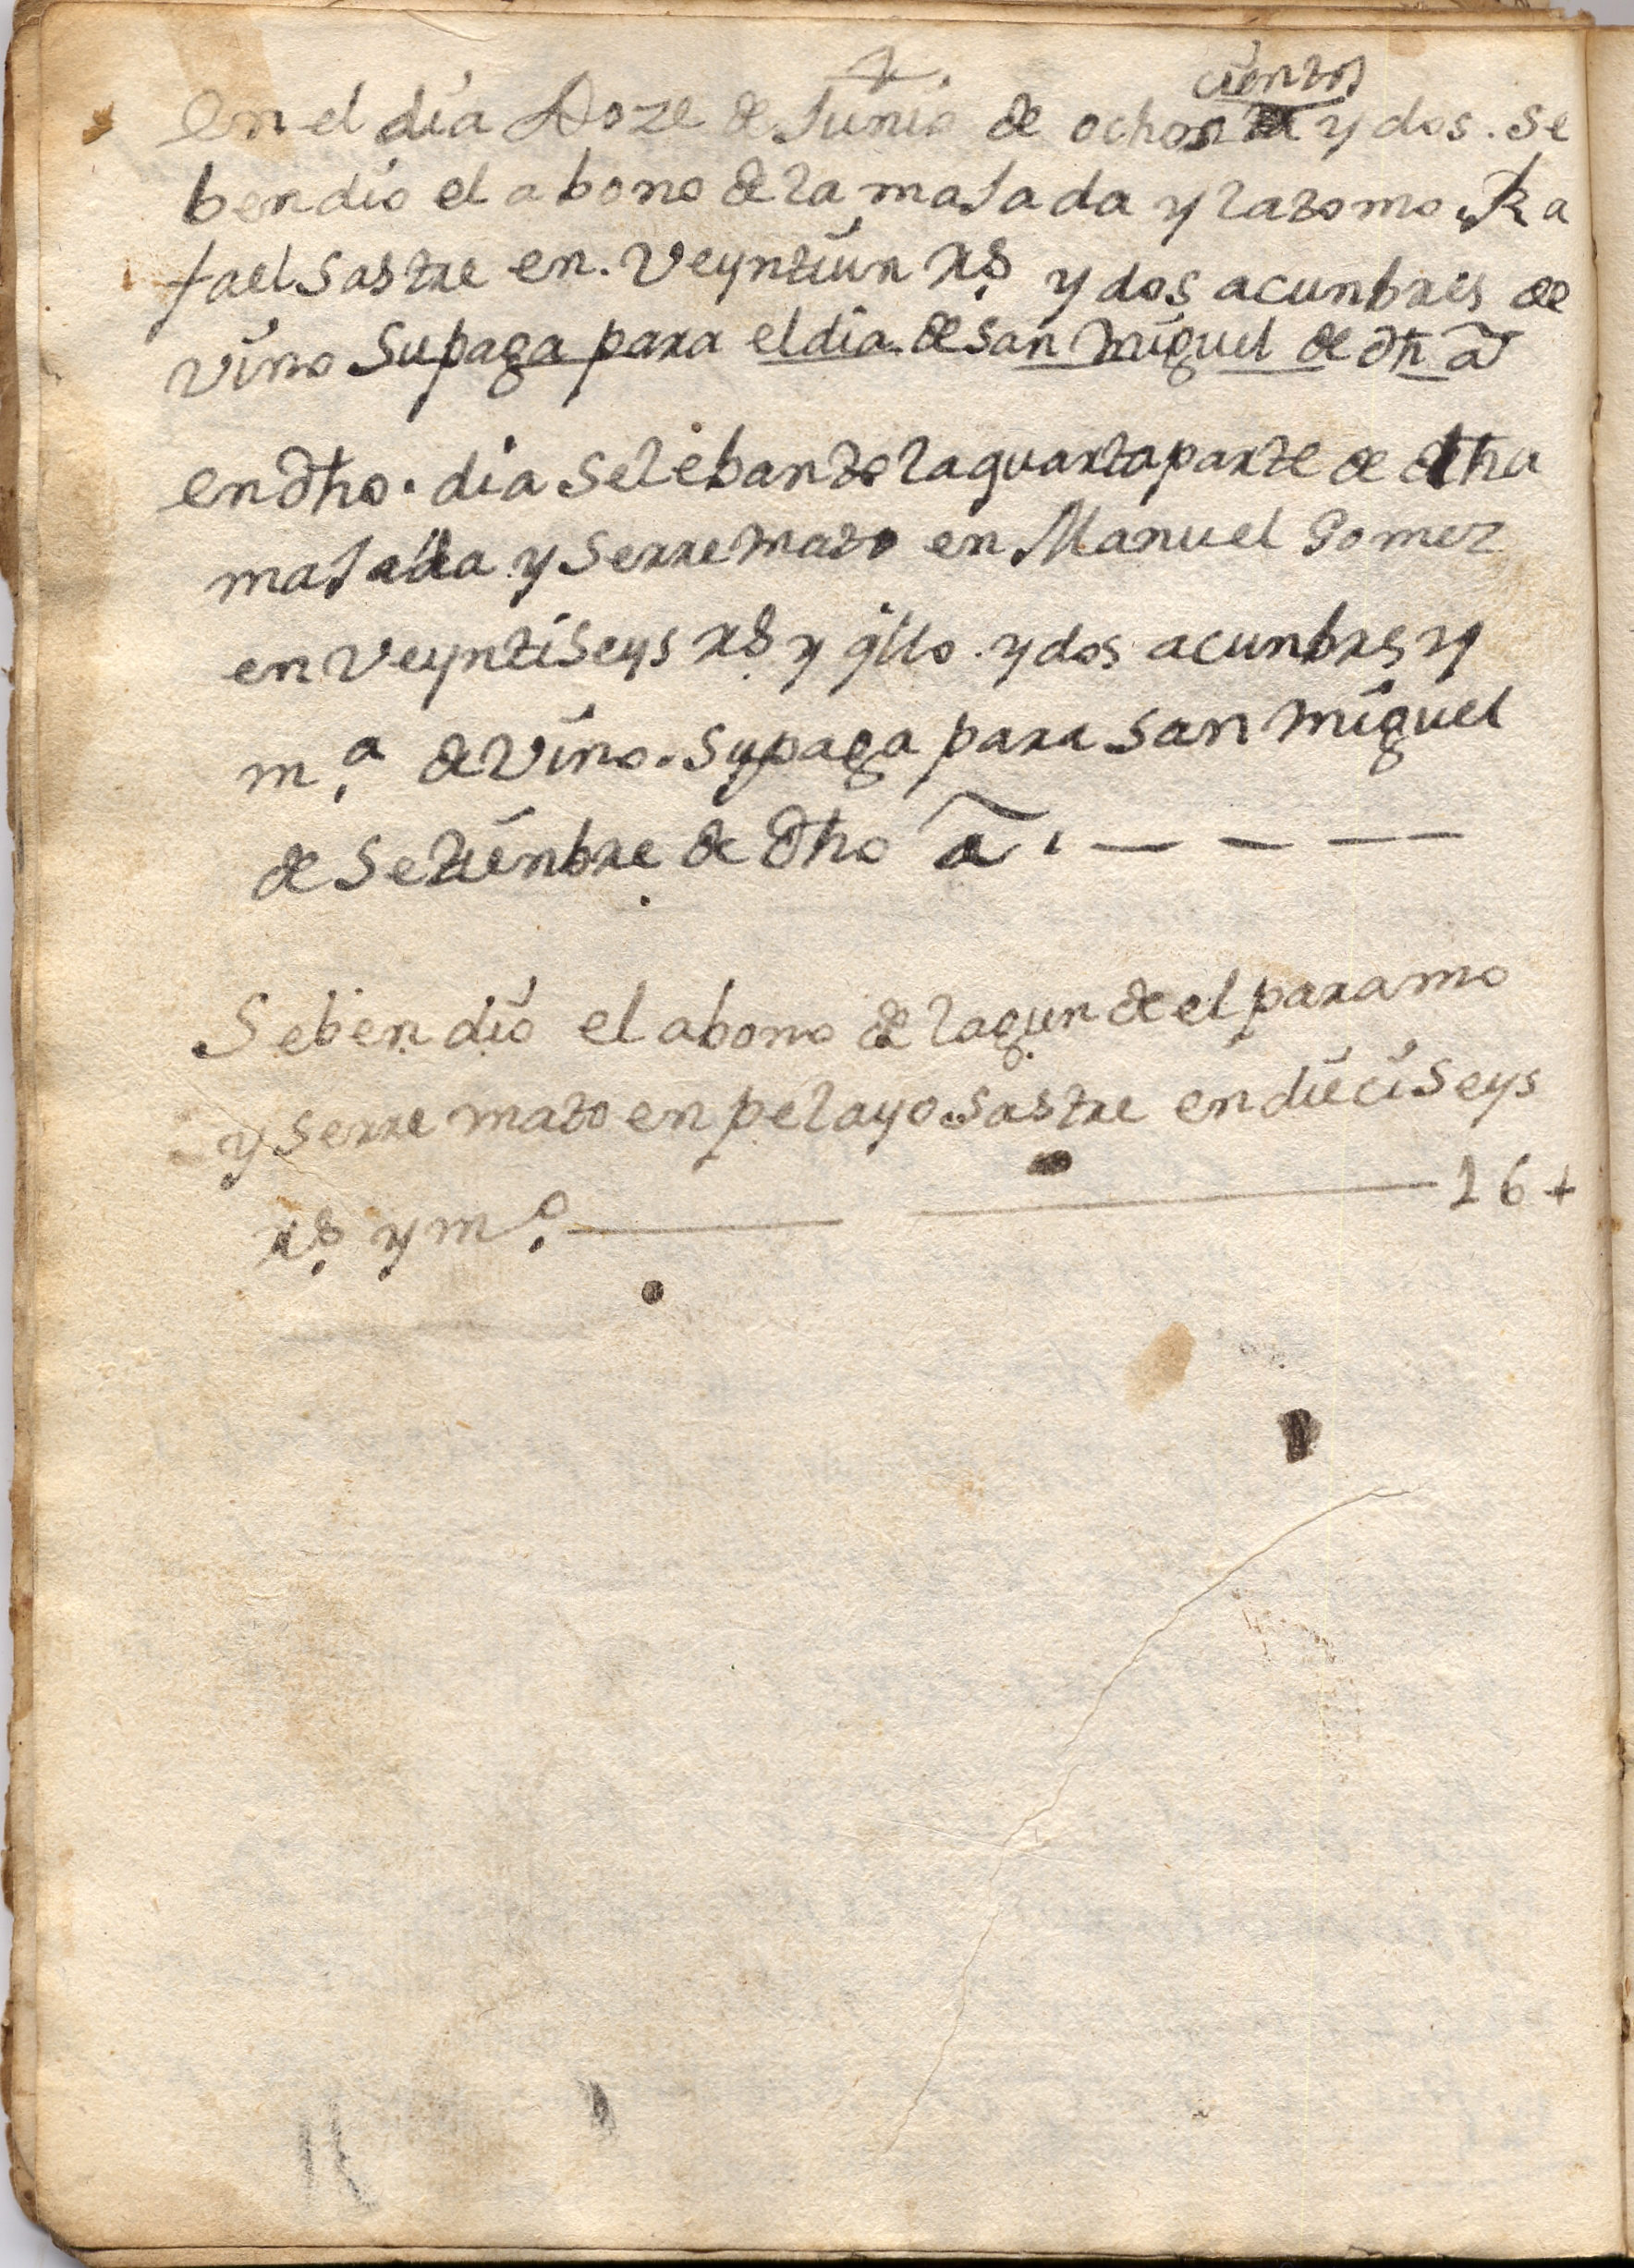 en el dia Doze de Junio de ochocientos y dos. se
bendio el abono de la majada y la tomo Ra
fael Sastre en. Veyntiun Rs y dos acunbres de
vino su paga para el dia de san Miguel de dh a
en dho. dia se lebanto la quarta parte de dha
majada y se rremato en Manuel Gomez
en veyntiseys Rs y qllo y dos acunbres y
m.a de vino. su paga para San Miguel
de Setienbre de dho a
Se bendio el abono de lagun de el paramo
y se rremato en pelayo sastre en dieciseys
Rs y m.o 16 +